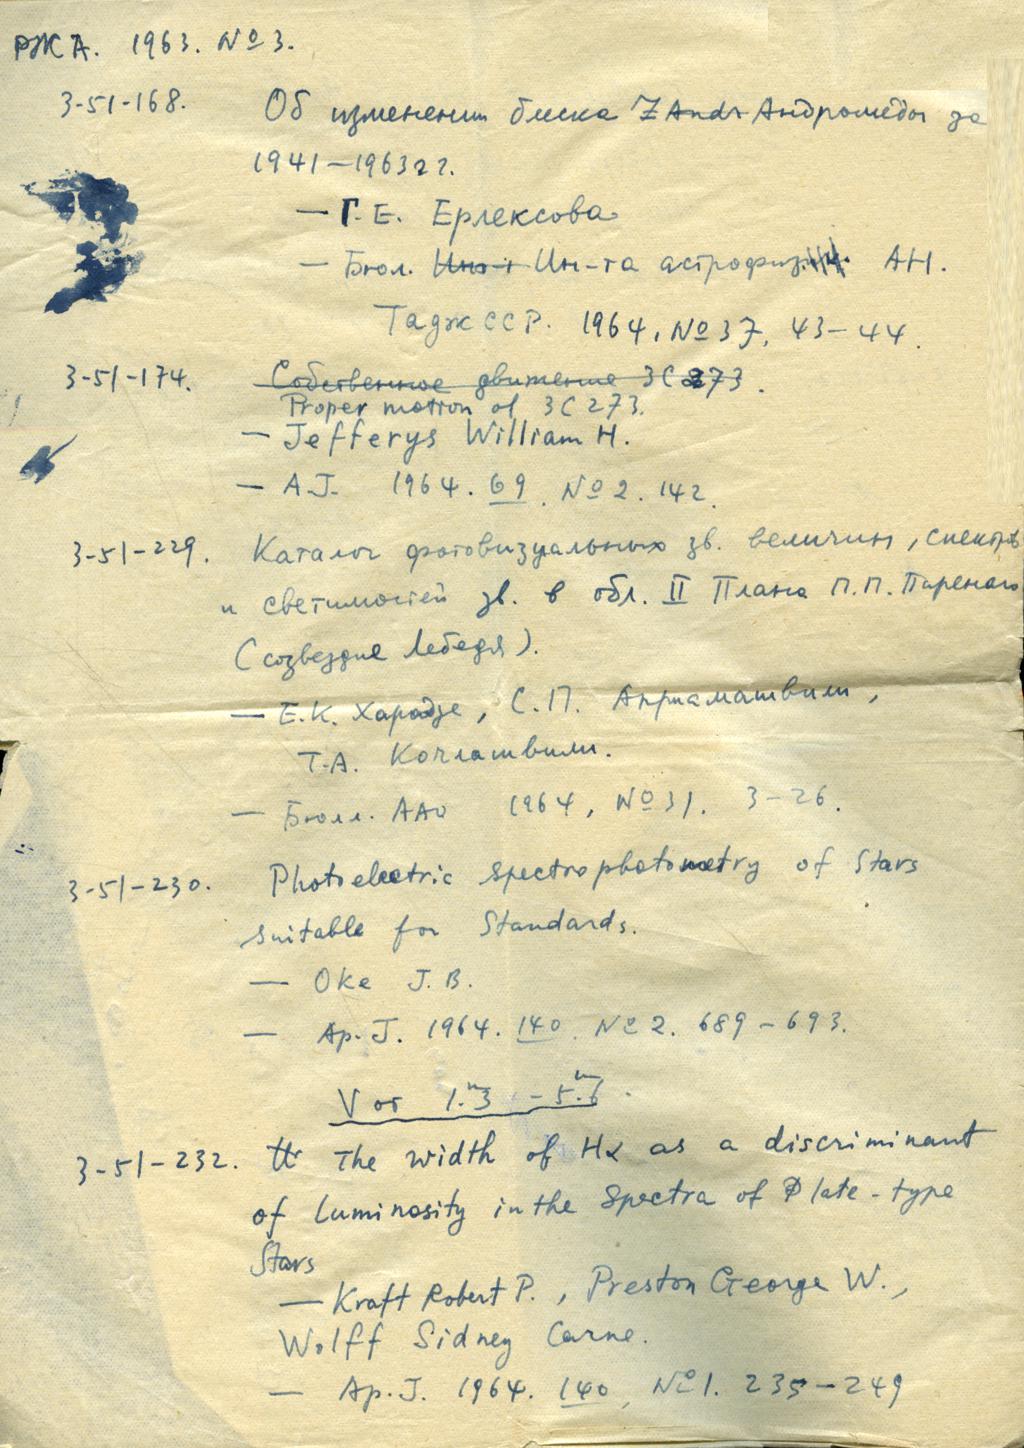 РЖА. 1963. № 3.
3-51-168. Об изменении блеска Z Andr Андромеды за
1941-1963 гг.
— Г.Е. Ерлексова
— Бюл. Ин-та астрофиз. АН.
Тадж ССР. 1964, № 37, 43-44.
3-51-174. Собственное движение 3C 273.
Proper motion of 3C 273.
— Jefferys William H.
— A.J. 1964. 69. № 2. 142.
3-51-229. Каталог фотовизуальных зв. величин, спектров
и светимостей зв. в обл. II Плана П.П. Паренаго
(созвездие Лебедя).
— Е.К. Харадзе, С.П. Априамашвили,
Т.А. Кочлашвили.
— Бюлл. ААО 1964, № 31. 3-26.
3-51-230. Photoelectric spectrophotometry of Stars
suitable for Standards.
— Oke J.B.
— Ap.J. 1964. 140. № 2. 689-693.
V от 1.ᵐ3 - 5.ᵐ6.
3-51-232. The width of Hα as a discriminant
of luminosity in the spectra of late-type
Stars
— Kraft Robert P., Preston George W.,
Wolff Sidney Carne.
— Ap.J. 1964. 140, № 1. 235-249